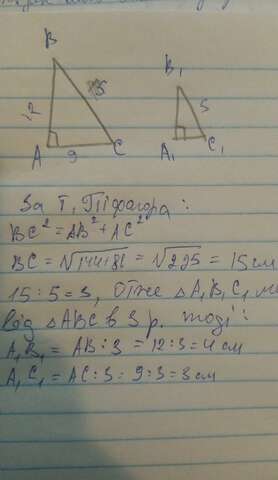 B
B₁
15
12
5
A
9
C
A₁
C₁
За т. Піфагора:
BC² = AB² + AC²
BC = √144+81 = √225 = 15 см
15 : 5 = 3, Отже △A₁B₁C₁
від △ABC в 3 р. тоді:
A₁B₁ = AB : 3 = 12 : 3 = 4 см
A₁C₁ = AC : 3 = 9 : 3 = 3 см